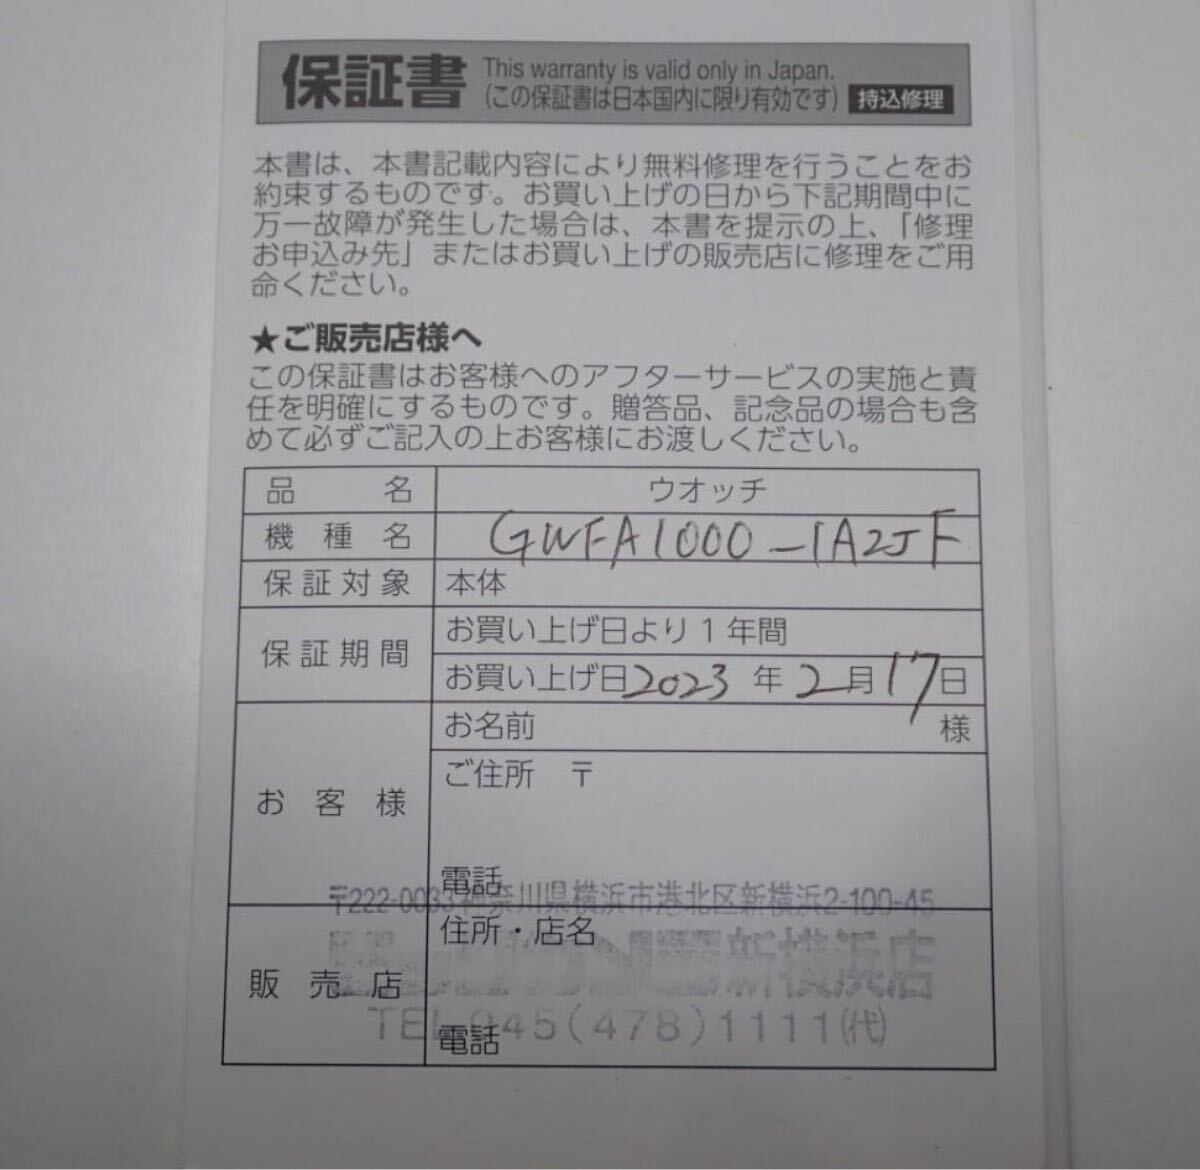 保証書 This warranty is valid only in Japan.
(この保証書は日本国内に限り有効です) 持込修理
本書は、本書記載内容により無料修理を行うことをお
約束するものです。お買い上げの日から下記期間中に
万一故障が発生した場合は、本書を提示の上、「修理
お申込み先」またはお買い上げの販売店に修理をご用
命ください。
★ご販売店様へ
この保証書はお客様へのアフターサービスの実施と責
任を明確にするものです。贈答品、記念品の場合も含
めて必ずご記入の上お客様にお渡しください。
品名 ウオッチ
機種名 GWFA1000-1A2JF
保証対象 本体
保証期間 お買い上げ日より1年間
お買い上げ日2023年2月17日
お客様 お名前 様
ご住所 〒
電話
〒222-0033神奈川県横浜市港北区新横浜2-100-45
販売店 住所・店名
新横浜店
TEL 045(478)1111(代)
電話